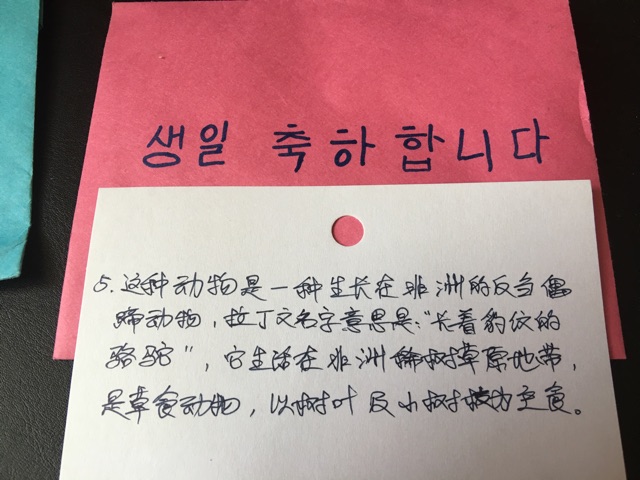 생일 축하합니다
5. 这种动物是一种生长在非洲的反刍偶
蹄动物，拉丁文名字意思是："长着豹纹的
骆驼"，它生活在非洲稀树草原地带，
是草食动物，以树叶及小树枝为主食。